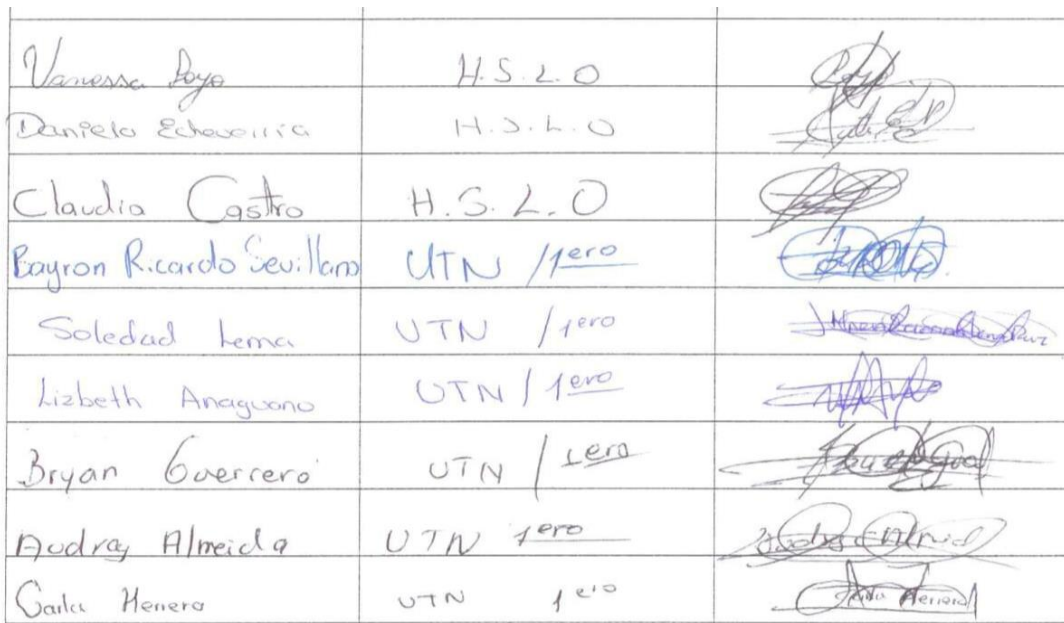 Vanessa Poyo H.S.L.O
Daniela Echeverria H.S.L.O
Claudia Castro H.S.L.O
Bayron Ricardo Sevillano UTN /1ero
Soledad Lema UTN /1ero
Lizbeth Anaguano UTN /1ero
Bryan Guerrero UTN /1ero
Audray Almeida UTN 1ero
Carla Herrera UTN 1ero